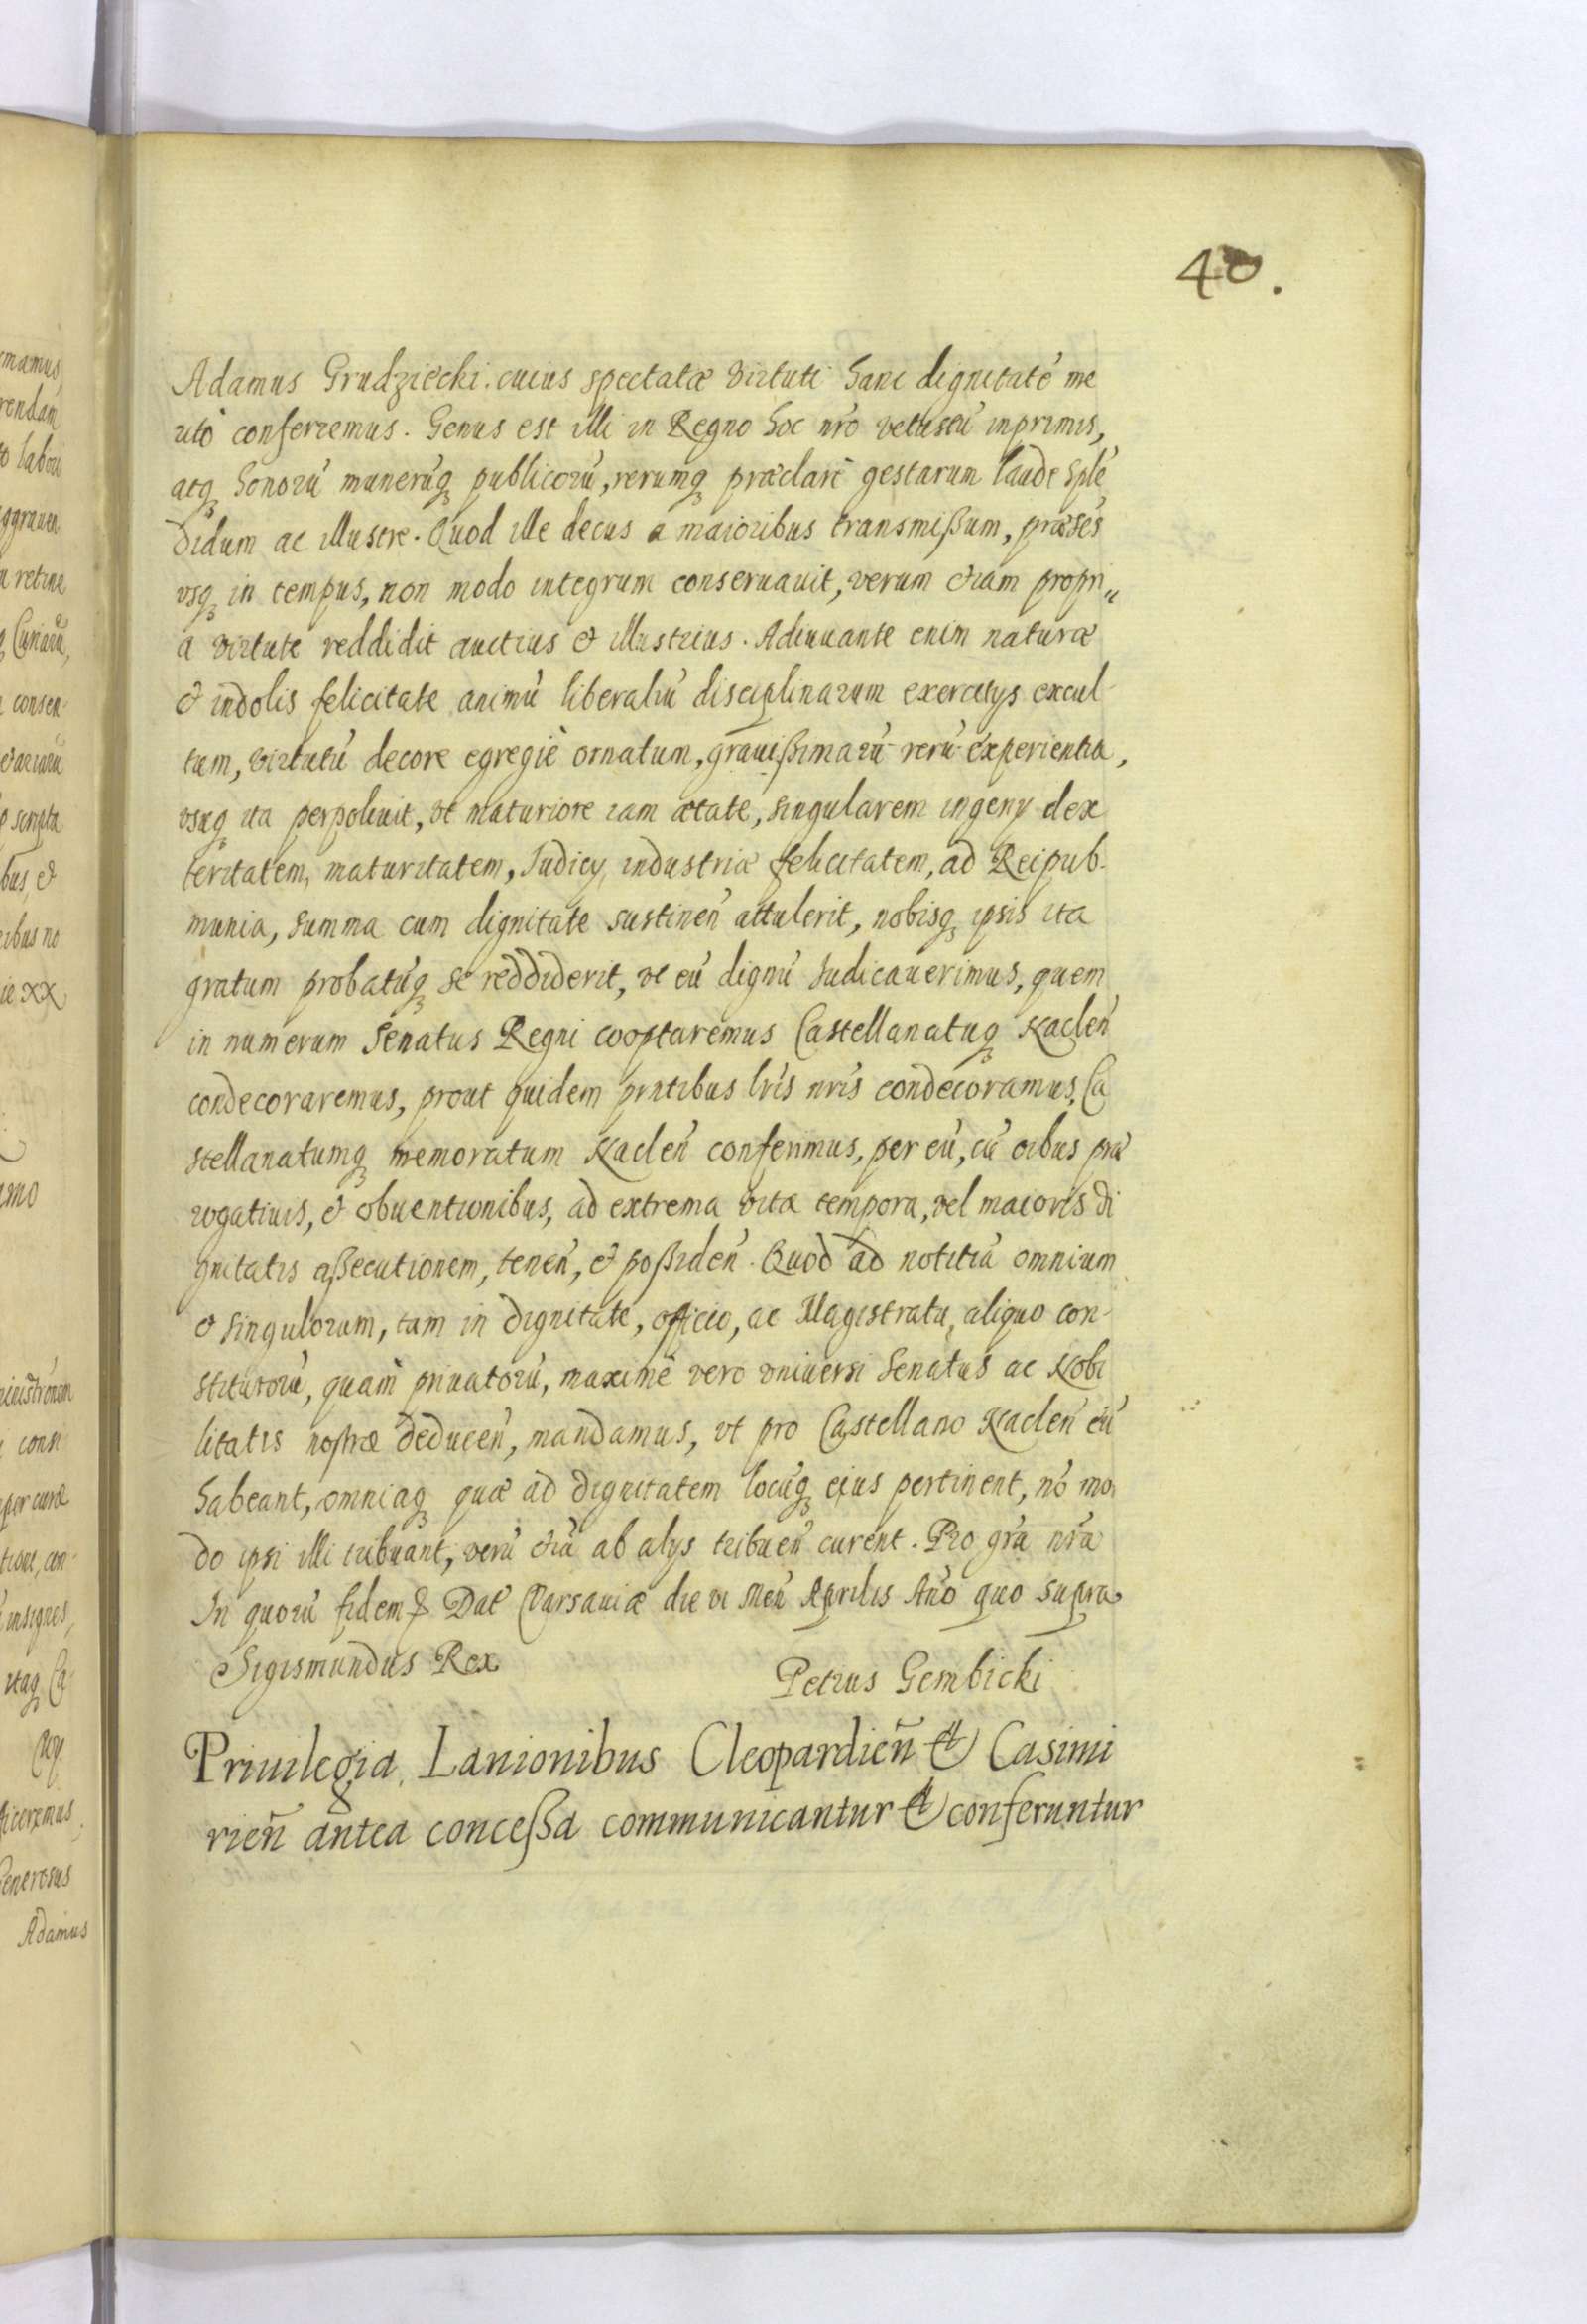 40.
Adamus Grudziecki. cuius spectatæ virtuti hanc dignitatē me
rito conferremus. Genus est illi in Regno hoc nr̄o vetustū inprimis,
atq̨ honorū munerūq̨ publicorū, rerumq̨ præclarè gestarum laude splē
didum ac illustre. Quod ille decus a maioribus transmißum, præsēs
vsq̨ in tempus, non modo integrum conseruauit, verum etiam propri„
a virtute reddidit auctius & illustrius. Adiuuante enim naturæ
& indolis felicitate animū liberaliū disciplinarum exercitys excul-
tum, virtutū decore egregiè ornatum, grauißimarū rerū experientia,
vsuq̨ ita perpoliuit, vt maturiore iam ætate, singularem ingeny dex
teritatem, maturitatem, Iudicy, industriæ felicitatem, ad Reipub.
munia, summa cum dignitate sustinen̄ attulerit, nobisq̨ ipsis ita
gratum probatūq̨ se reddiderit, vt eū dignū Iudicauerimus, quem
in numerum Senatus Regni cooptaremus Castellanatuq̨ Naclen̄
condecoraremus, prout quidem pn̄tibus lr̄is nr̄is condecoramus, Ca
stellanatumq̨ memoratum Naclen̄ conferimus, per eū, cū oībus præ
rogatiuis, & obuentionibus, ad extrema vitæ tempora, vel maioris di
gnitatis aßecutionem, tenen̄, & poßiden̄. Quod ad notitiā omnium
& singulorum, tam in dignitate, officio, ac Magistratu, aliquo con-
stitutorū, quam priuatorū, maximè vero vniuersi Senatus ac Nobi
litatis nostræ deducen̄, mandamus, vt pro Castellano Naclen̄ eū
habeant, omniaq̨ quæ ad dignitatem locūq̨ eius pertinent, nō mo
do ipsi illi tribuant, verū etiā ab alys tribuen̄ curent. Pro gr̄a nr̄a
In quorū fidem & Dat Varsauiæ die vi Men̄ Aprilis Ano quo supra
Sigismundus Rex
Petrus Gembicki
Priuilegia Lanionibus Cleopardien̄ & Casimi
rien̄ antea conceßa communicantur & conferuntur
mamus
rendam
labou
retine
consen
scripta
bus, &
ribus no
ie xx
cons
per curæ
insignes,
itaq̨ Ca
ficeremus
Generosus
Adamus